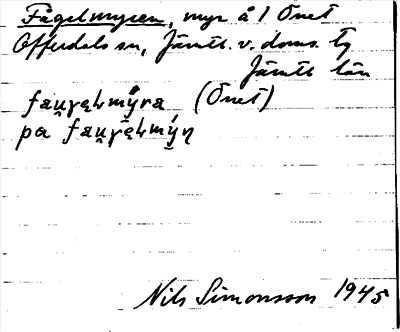 Fågelmyren, myr å 1 Önet
Offerdals sn, Jämtl. v. doms. tg
Jämtl län
fau̯gəlmýra (Önet)
pa fau̯gəlmýn
Nils Simonsson 1945